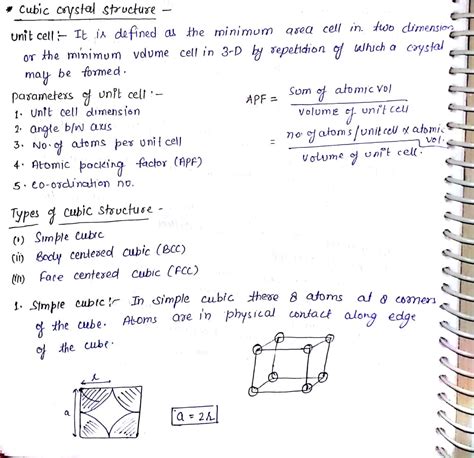 * Cubic crystal structure -
Unit cell :- It is defined as the minimum area cell in two dimension
or the minimum volume cell in 3-D by repetition of which a crystal
may be formed.
Parameters of unit cell :-
1. Unit cell dimension
2. Angle b/w axis
3. No. of atoms per unit cell
4. Atomic packing factor (APF)
5. Co-ordination no.
APF = Sum of atomic vol / volume of unit cell
= no of atoms/unit cell x atomic vol. / volume of unit cell.
Types of cubic structure -
(i) Simple cubic
(ii) Body centered cubic (BCC)
(iii) Face centered cubic (FCC)
1. Simple cubic :- In simple cubic there 8 atoms at 8 corners
of the cube. Atoms are in physical contact along edge
of the cube.
r
a
a = 2r